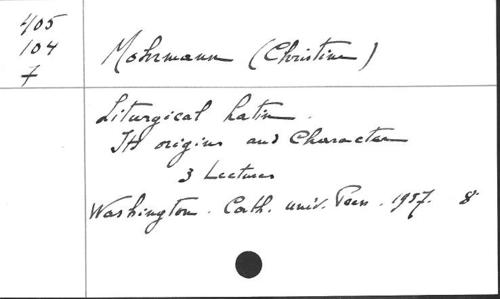 405
104
7
Mohrmann (Christine)
Liturgical Latin.
Its origins and Character
3 Lectures
Washington. Cath. univ. Press. 1957. 8°